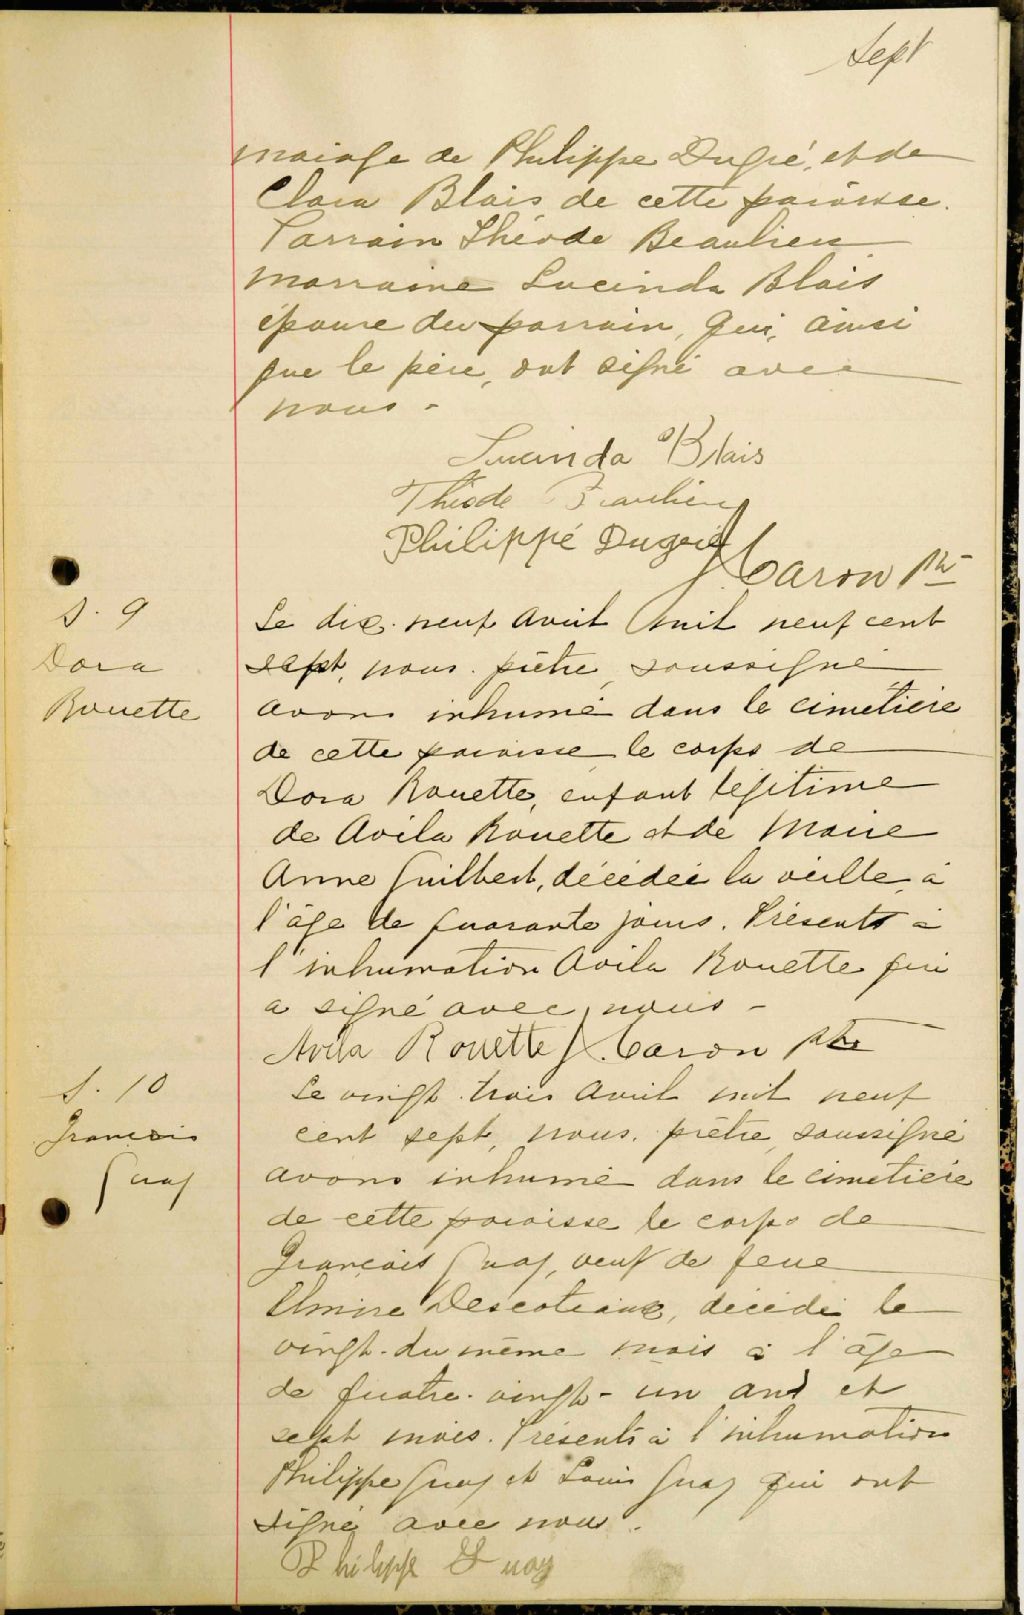 Sept
mariage de Philippe Dugré, et de
Clara Blais de cette paroisse.
Parrain Théode Beaulieu
marraine Lucinda Blais
épouse du parrain, qui, ainsi
que le père, ont signé avec
nous -
Lucinda Blais
Théode Beaulieu
Philippé Dugré
Caron Ptre
S. 9
Dora
Rouette
Le dix-neuf avril mil neuf cent
sept, nous, prêtre, soussigné
avons inhumé dans le cimetière
de cette paroisse le corps de
Dora Rouette, enfant légitime
de Avila Rouette et de Marie
Anne Guilbert, décédée la veille, à
l'âge de quarante jours. Présents à
l'inhumation Avila Rouette qui
a signé avec nous -
Avila Rouette Caron Ptre
S. 10
François
Guay
Le vingt-trois avril mil neuf
cent sept, nous, prêtre, soussigné
avons inhumé dans le cimetière
de cette paroisse le corps de
François Guay, veuf de feue
Elmire Descoteaux, décédé le
vingt du même mois à l'âge
de quatre-vingt-un ans et
sept mois. Présents à l'inhumation
Philippe Guay et Louis Guay qui ont
signé avec nous.
Philippe Guay